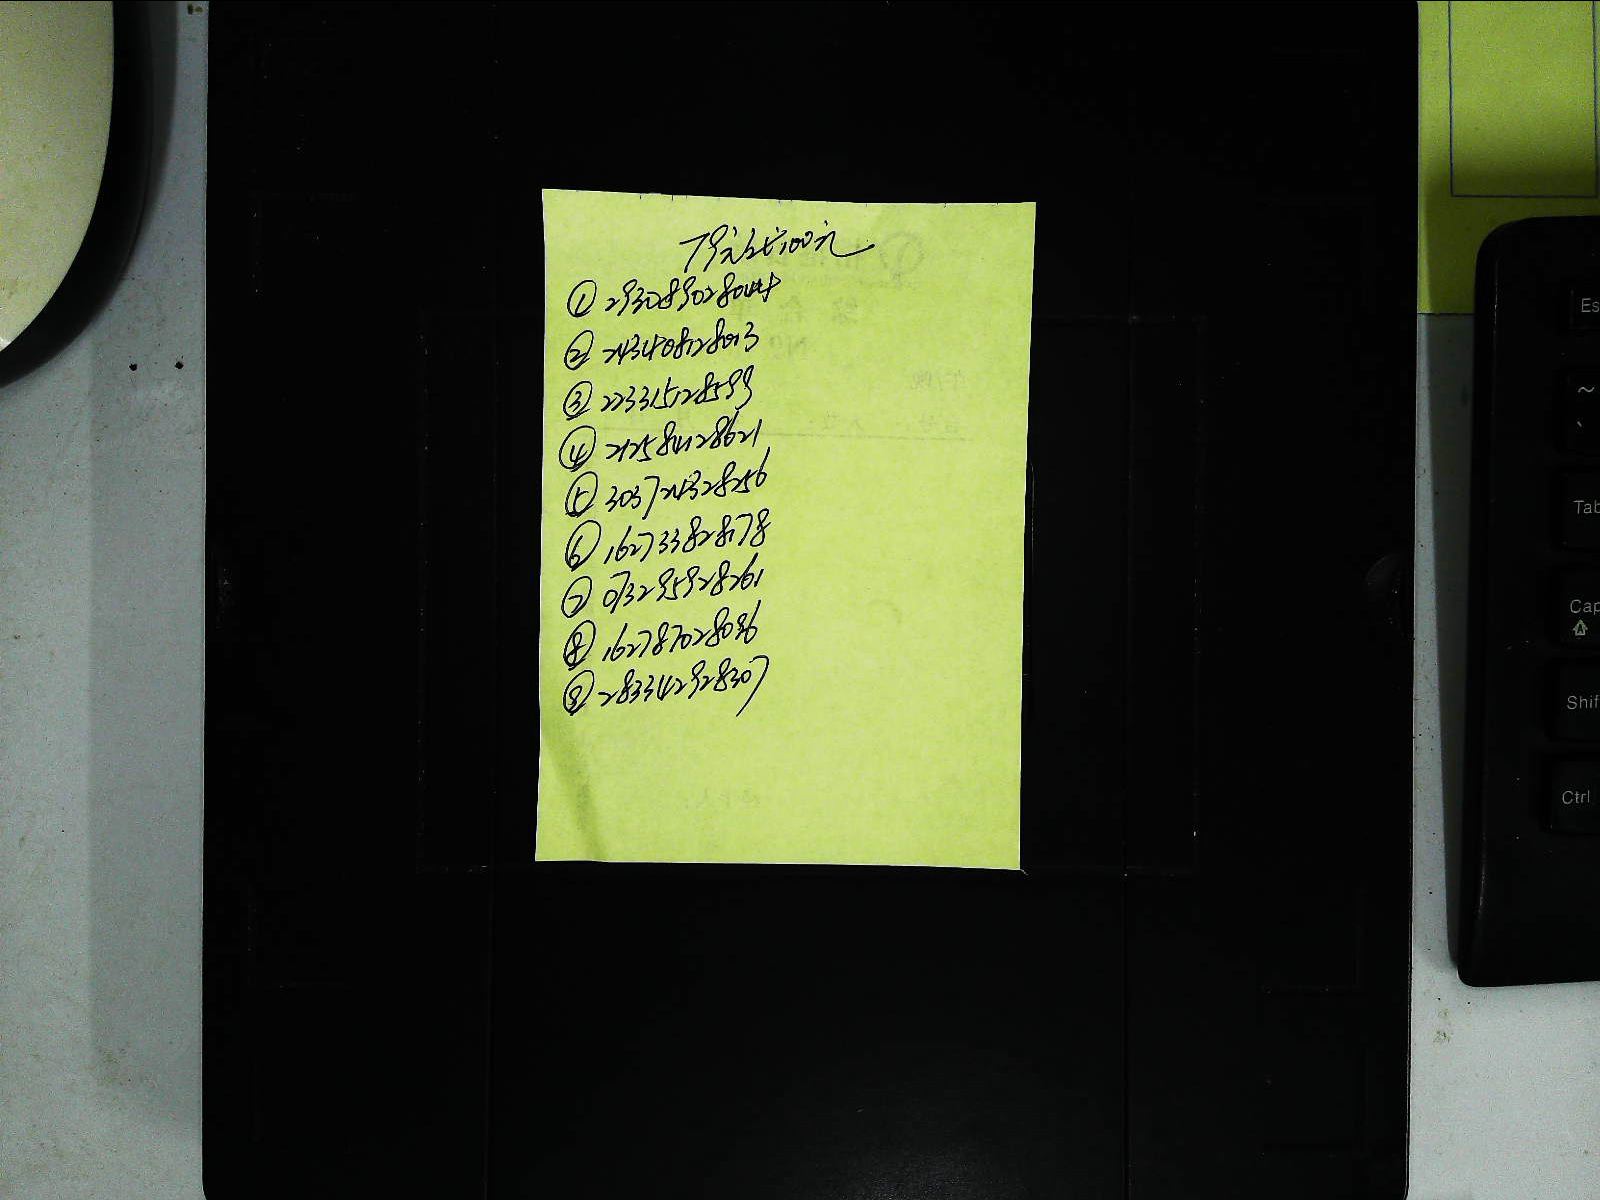 100元
① 293089028044
② 243408128013
③ 223315128599
④ 212584128621
⑤ 303724328256
⑥ 162733828178
⑦ 073295928261
⑧ 162787028096
⑨ 283342928307
Es
~
\`
Tab
Cap
Shif
Ctrl